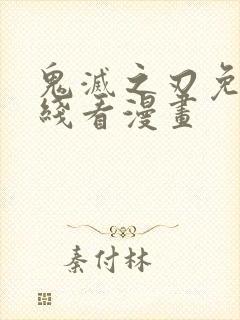 鬼滅之刃免
綫看漫畫
秦付林